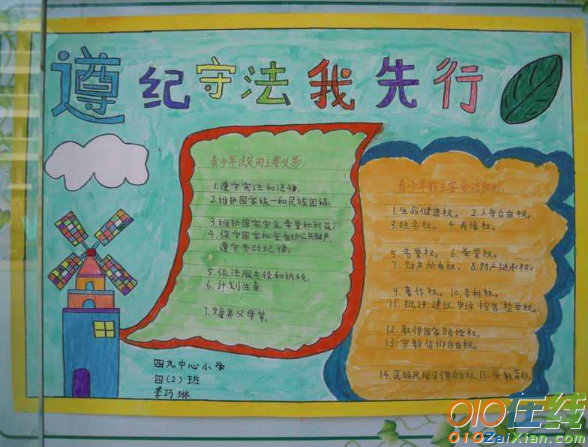 遵纪守法我先行
青少年法定的主要义务:
1.遵守宪法和法律。
2.维护国家统一和民族团结。
3.维护国家安全荣誉和利益。
4.保守国家秘密
遵守劳动纪律。
5.依法服兵役和纳税。
6.计划生育。
7.赡养父母等。
青少年的主要合法权利:
1.生命健康权。 2.人身自由权。
3.姓名权。 4.肖像权。
5.名誉权。 6.荣誉权。
7.财产所有权。 8.财产继承权。
9.著作权。 10.专利权。
11.批评.建议.申诉.控告.检举权。
12.取得国家赔偿权。
13.宗教信仰自由权。
14.民族风俗习惯 15.受教育权
四九中心小学
四(2)班
李巧琳
010在线
010ZaiXian.com